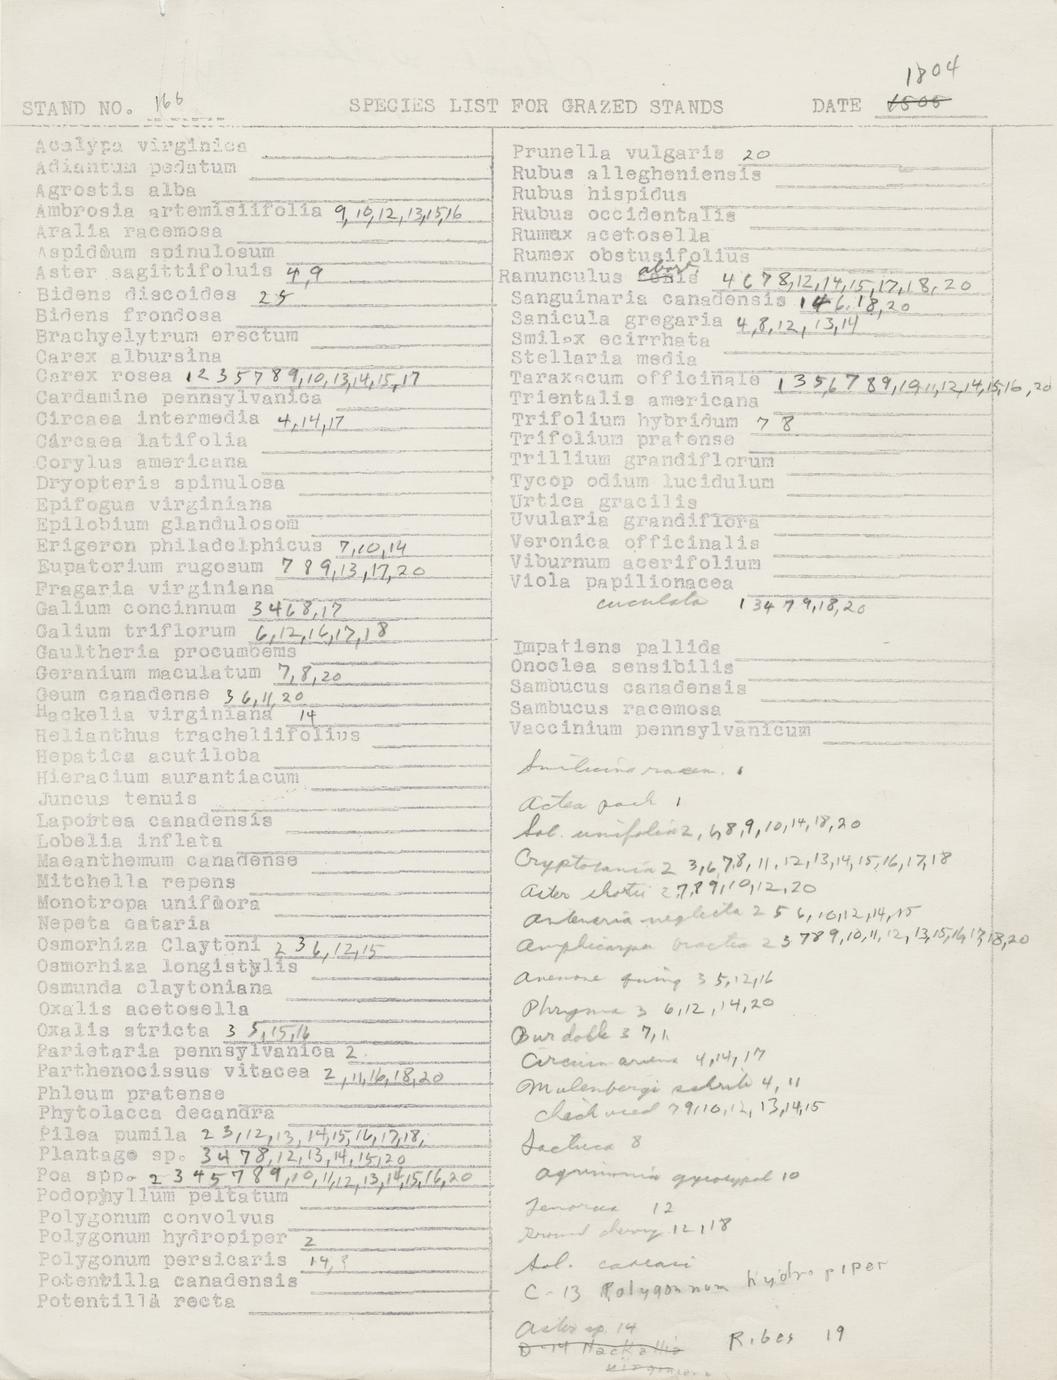 1804
STAND NO. 166 SPECIES LIST FOR GRAZED STANDS DATE 1805
Acalypa virginica
Adiantum pedatum
Agrostis alba
Ambrosia artemisiifolia 9,10,12,13,15,16
Aralia racemosa
Aspidium spinulosum
Aster sagittifoluis 4,9
Bidens discoides 2 5
Bidens frondosa
Brachyelytrum erectum
Carex albursina
Carex rosea 1 2 3 5 7 8 9,10,13,14,15,17
Cardamine pennsylvanica
Circaea intermedia 4,14,17
Circaea latifolia
Corylus americana
Dryopteris spinulosa
Epifogus virginiana
Epilobium glandulosom
Erigeron philadelphicus 7,10,14
Eupatorium rugosum 7 8 9,13,17,20
Fragaria virginiana
Galium concinnum 3 4 6 8,17
Galium triflorum 6,12,16,17,18
Gaultheria procumbems
Geranium maculatum 7,8,20
Geum canadense 3 6,11,20
Hackelia virginiana 14
Helianthus tracheliifolius
Hepatica acutiloba
Hieracium aurantiacum
Juncus tenuis
Laportea canadensis
Lobelia inflata
Maeanthemum canadense
Mitchella repens
Monotropa uniflora
Nepeta cataria
Osmorhiza Claytoni 2 3 6,12,15
Osmorhiza longistylis
Osmunda claytoniana
Oxalis acetosella
Oxalis stricta 3 5,15,16
Parietaria pennsylvanica 2
Parthenocissus vitacea 2,11,16,18,20
Phleum pratense
Phytolacca decandra
Pilea pumila 2 3,12,13,14,15,16,17,18,
Plantago sp. 3 4 7 8,12,13,14,15,20
Poa spp. 2 3 4 5 7 8 9,10,11,12,13,14,15,16,20
Podophyllum peltatum
Polygonum convolvus
Polygonum hydropiper 2
Polygonum persicaris 14,?
Potentilla canadensis
Potentilla recta
Prunella vulgaris 20
Rubus allegheniensis
Rubus hispidus
Rubus occidentalis
Rumax acetosella
Rumex obstusifolius
Ranunculus abort. 4 6 7 8,12,14,15,17,18,20
Sanguinaria canadensis 1 4 6,18,20
Sanicula gregaria 4,8,12,13,14
Smilax ecirrhata
Stellaria media
Taraxacum officinale 1 3 5,6 7 8 9,10,11,12,14,15,16,20
Trientalis americana
Trifolium hybridum 7 8
Trifolium pratense
Trillium grandiflorum
Tycop odium lucidulum
Urtica gracilis
Uvularia grandiflora
Veronica officinalis
Viburnum acerifolium
Viola papilionacea
cuculata 1 3 4 7 9,18,20
Impatiens pallida
Onoclea sensibilis
Sambucus canadensis
Sambucus racemosa
Vaccinium pennsylvanicum
Smilicina racem. 1
Actea pach 1
Sol. unifolia 2, 6,8,9,10,14,18,20
Cryptotania 2 3,6,7,8,11,12,13,14,15,16,17,18
Aster shortii 2,7,8 9,10,12,20
Antenaria neglecta 2 5 6,10,12,14,15
Amphicarpa bractea 2 3 7 8 9,10,11,12,13,15,16,17,18,20
Anemone quinq 3 5,12,16
Phryma 3 6,12,14,20
Burdock 3 7,1
Circium arvens 4,14,17
Mulenbergi schrib 4,11
chickweed 7 9,10,12,13,14,15
Lactuca 8
agrimonia gryposepal 10
12
ground cherry 12,18
Sol.
C-13 Polygonnum hydropiper
Aster sp. 14
D-14 Hackallia Ribes 19
virginiana